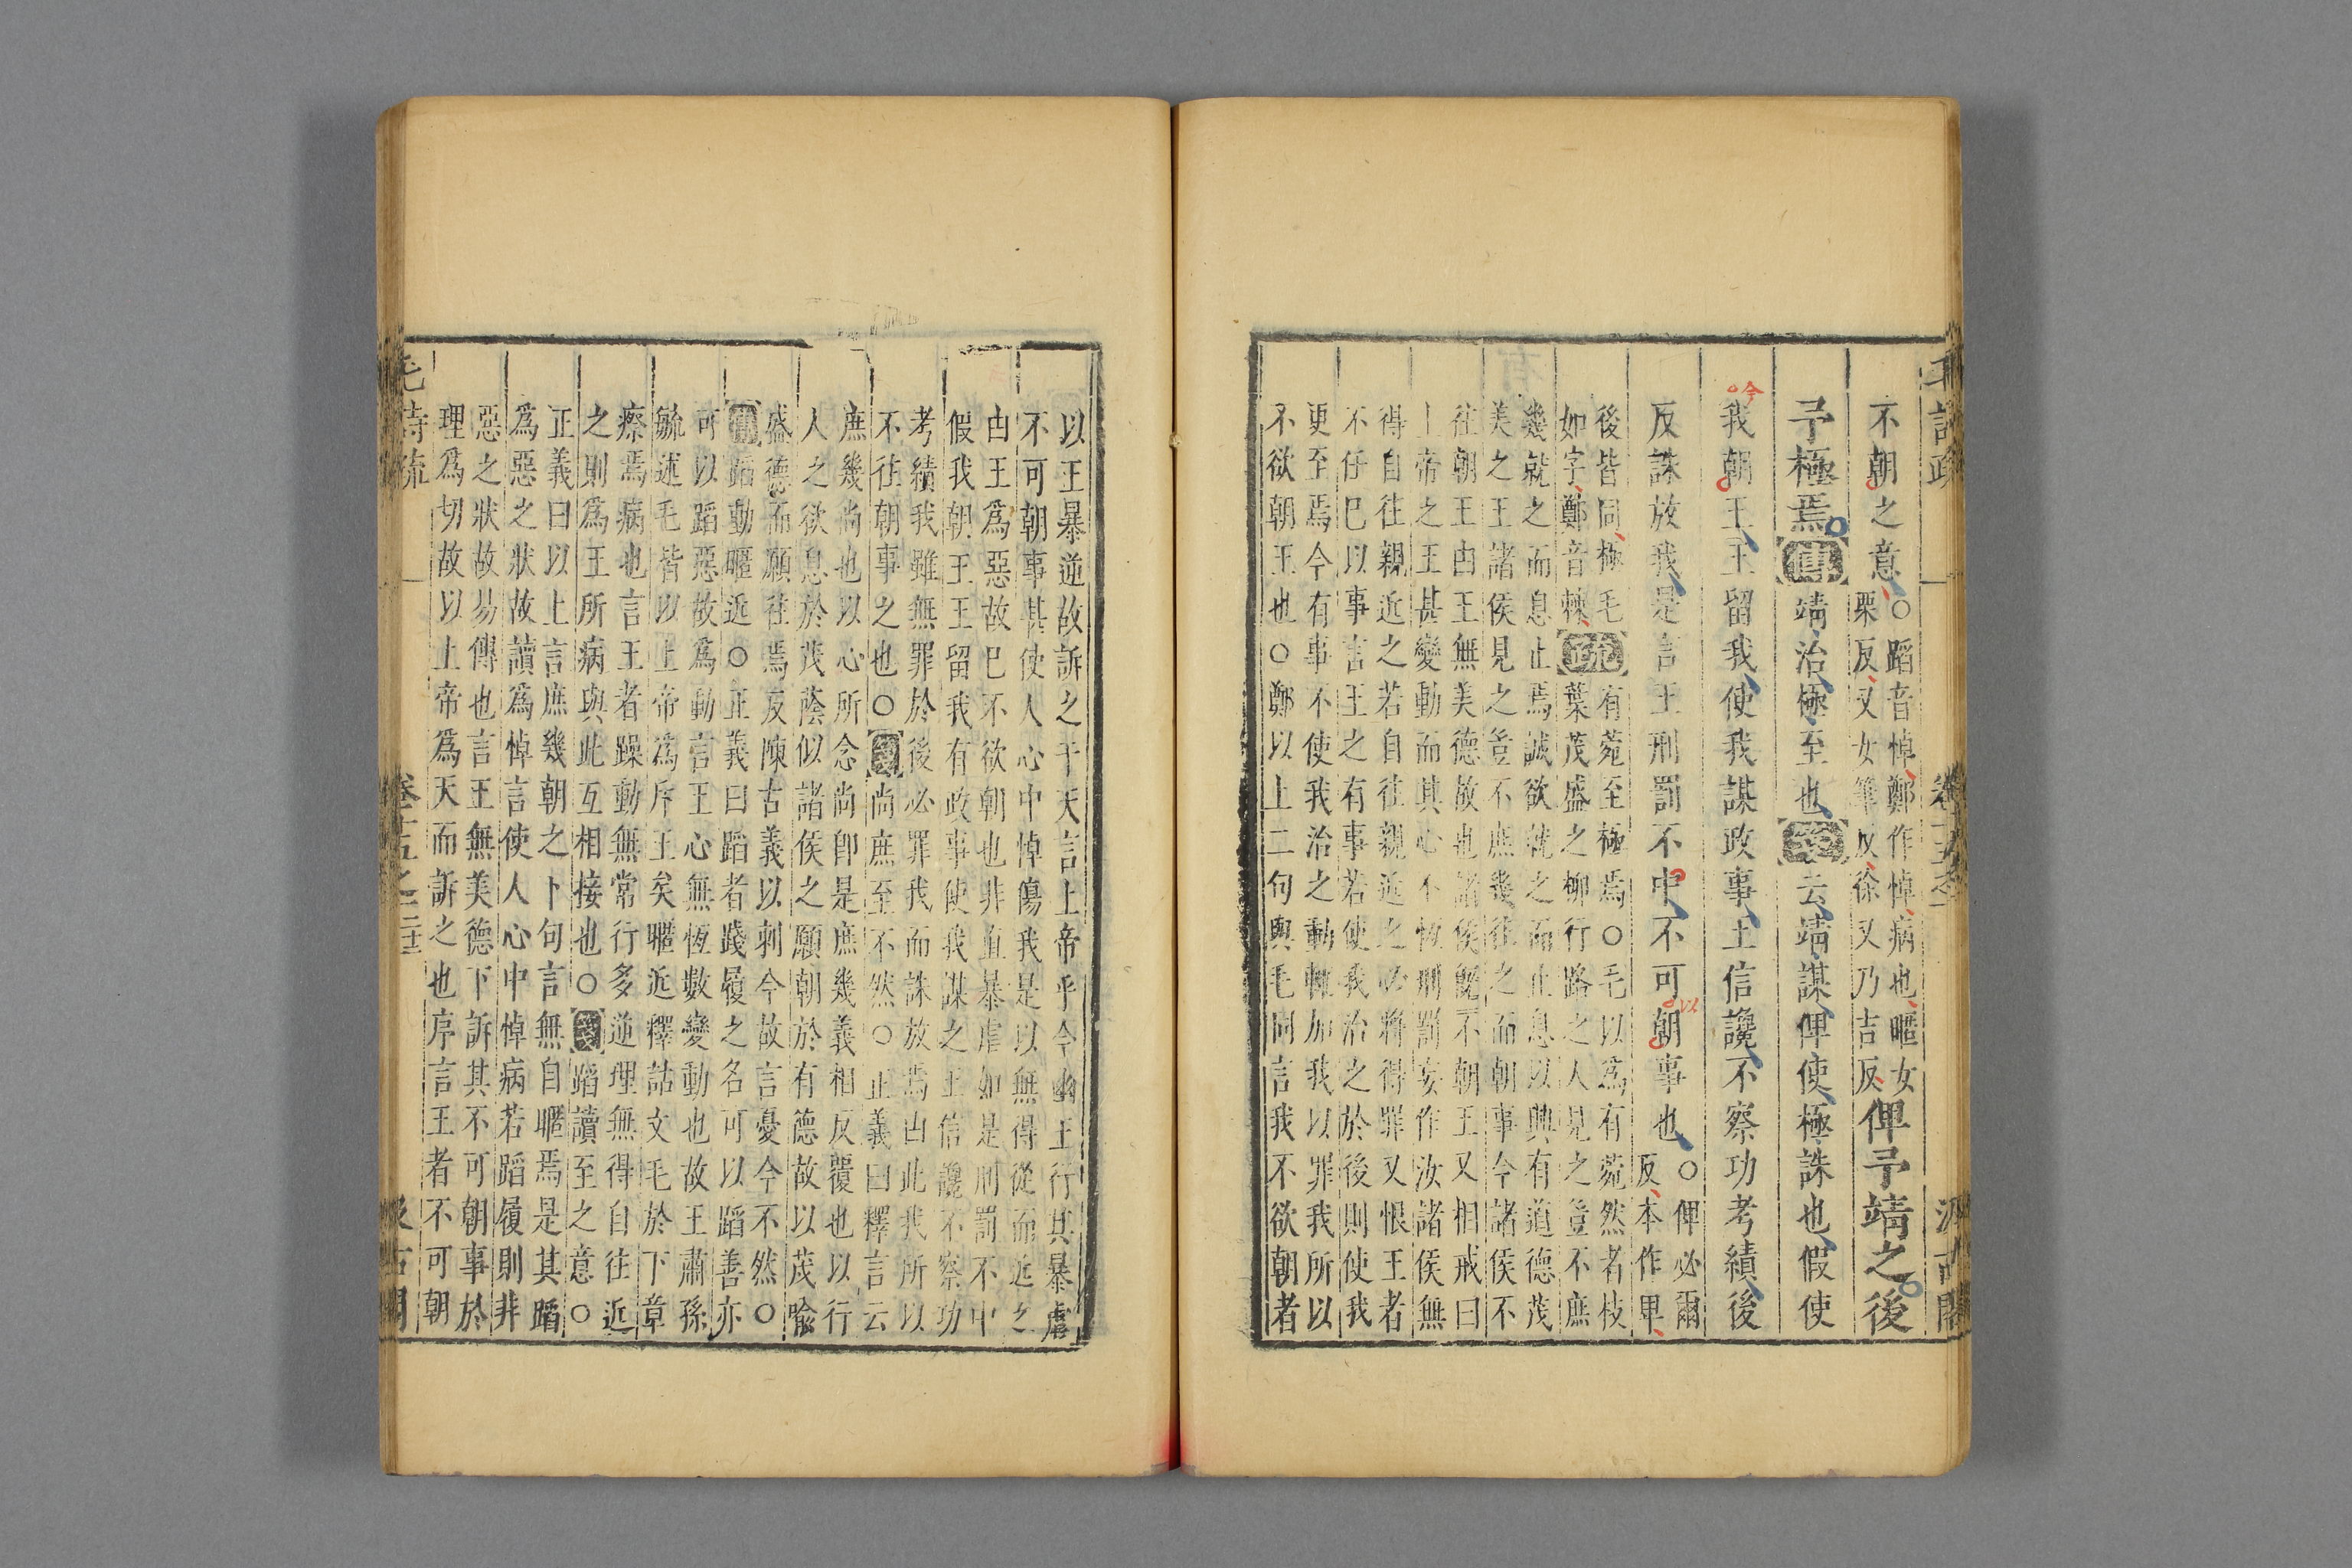 不朝之意○蹈音悼鄭作悼病也暱女
栗反又女筆反徐又乃吉反俾予靖之後
予極焉傳靖治極至也箋云靖謀俾使極誅也假使
我朝王王留我使我謀政事王信讒不察功考績後
反誅放我是言王刑罰不中不可朝事也○俾必爾
反本作卑
後皆同極毛
如字鄭音棘疏有菀至極焉○毛以為有菀然者枝
葉茂盛之柳行路之人見之豈不庶
幾就之而息止焉誠欲就之而止息以興有道德茂
美之王諸侯見之豈不庶幾往之而朝事今諸侯不
往朝王由王無美德故也諸侯旣不朝王又相戒曰
上帝之王甚變動而其心不恆刑罰妄作汝諸侯無
得自往親近之若自往親近之必將得罪又恨王者
不任巳以事言王之有事若使我治之於後則使我
更至焉今有事不使我治之動輒加我以罪我所以
不欲朝王也○鄭以上二句與毛同言我不欲朝者
以王暴逆故訴之于天言上帝乎今幽王行其暴虐
不可朝事甚使人心中悼傷我是以無得從而近之
由王為惡故巳不欲朝也非直暴虐如是刑罰不中
假我朝王王留我有政事使我謀之王信讒不察功
考績我雖無罪於後必罪我而誅放焉由此我所以
不往朝事之也○箋尚庶至不然○正義曰釋言云
庶幾尚也以心所念尚卽是庶幾義相反覆也以行
人之欲息於茂蔭似諸侯之願朝於有德故以茂喻
盛德而願往焉反陳古義以刺今故言憂今不然○
傳蹈動暱近○正義曰蹈者踐履之名可以蹈善亦
可以蹈惡故為動言王心無恆數變動也故王肅孫
毓述毛皆以上帝為斥王矣暱近釋詁文毛於下章
瘵焉病也言王者躁動無常行多逆理無得自往近
之則為王所病與此互相接也○箋蹈讀至之意○
正義曰以上言庶幾朝之下句言無自暱焉是其蹈
為惡之狀故讀為悼言使人心中悼病若蹈履則非
惡之狀故易傳也言王無美德下訴其不可朝事於
理為切故以上帝為天而訴之也序言王者不可朝
毛詩疏 卷十五之二 汲古閣